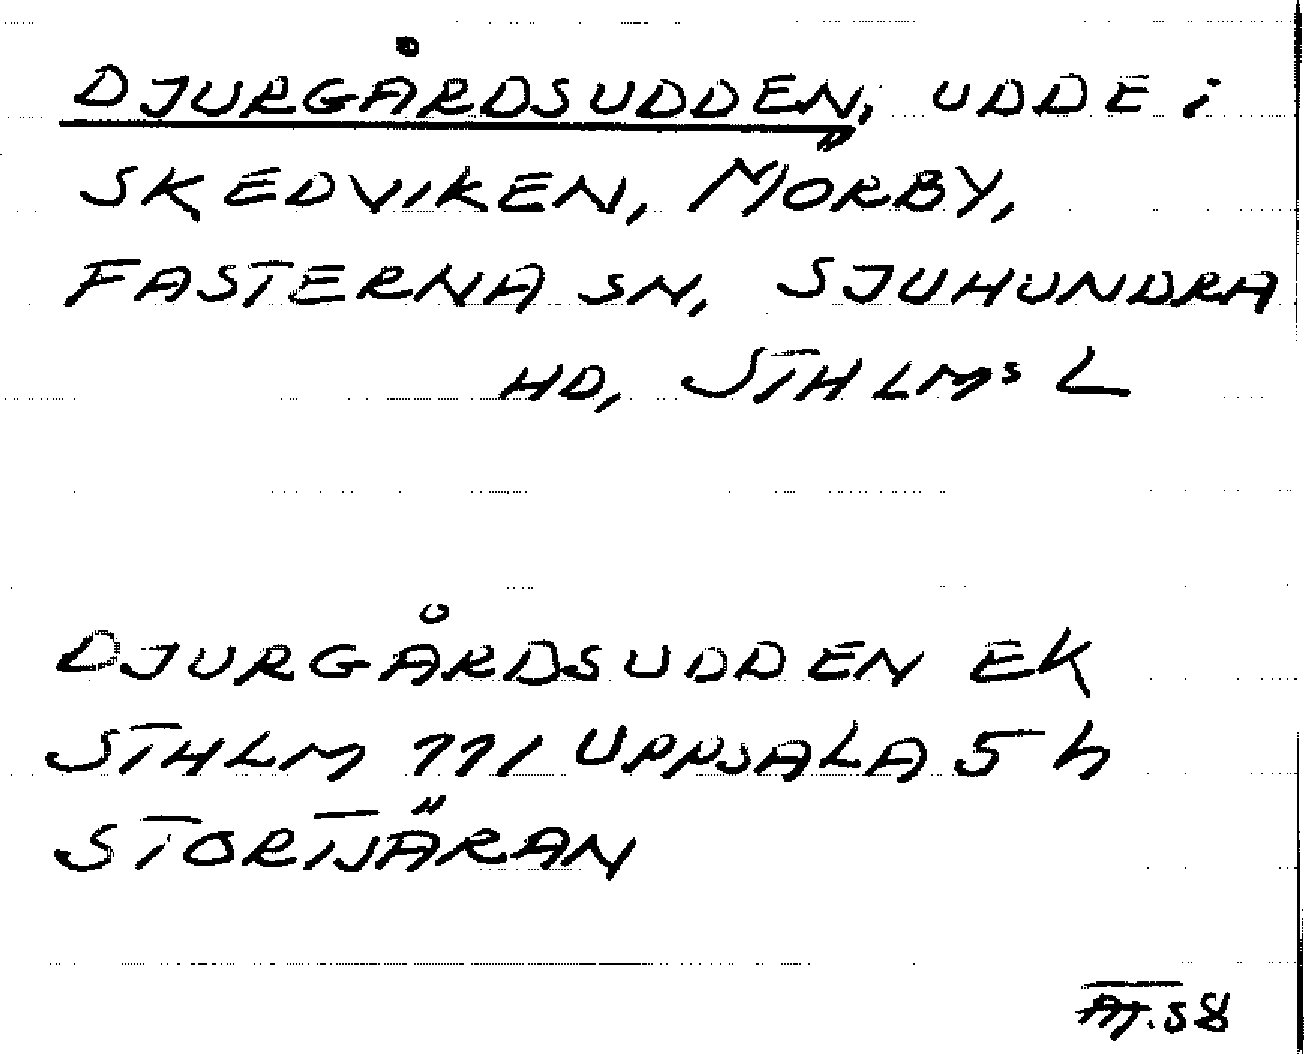 DJURGÅRDSUDDEN, UDDE i
SKEDVIKEN, MÖRBY,
FASTERNA SN, SJUHUNDRA
HD, STHLMS L
DJURGÅRDSUDDEN EK
STHLM 111 UPPSALA 5 h
STORTJÄRAN